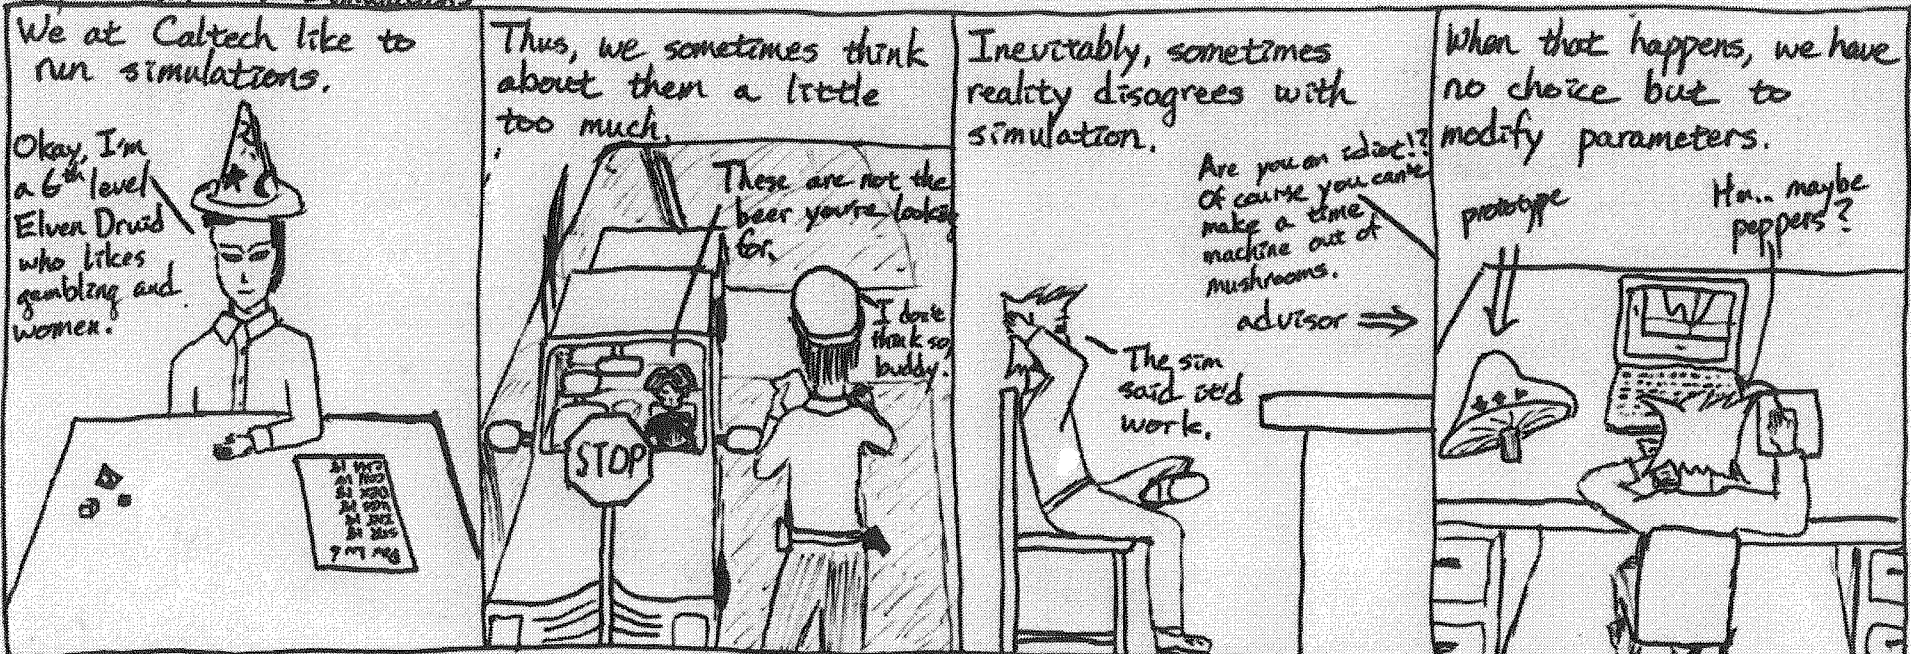 We at Caltech like to
run simulations.
Okay, I'm
a 6th level
Elven Druid
who likes
gambling and
women.
Thus, we sometimes think
about them a little
too much.
These are not the
beer you're looking
for.
I don't
think so
buddy.
STOP
Inevitably, sometimes
reality disagrees with
simulation.
Are you an idiot!?
Of course you can't
make a time
machine out of
mushrooms.
advisor
The sim
said it'd
work.
When that happens, we have
no choice but to
modify parameters.
prototype
Hm.. maybe
peppers?